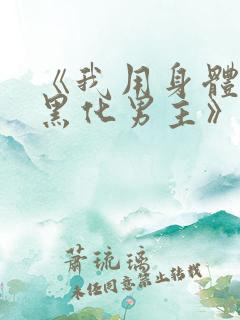 《我用身體
黑化男主》
蕭琉璃
未經同意禁止轉載